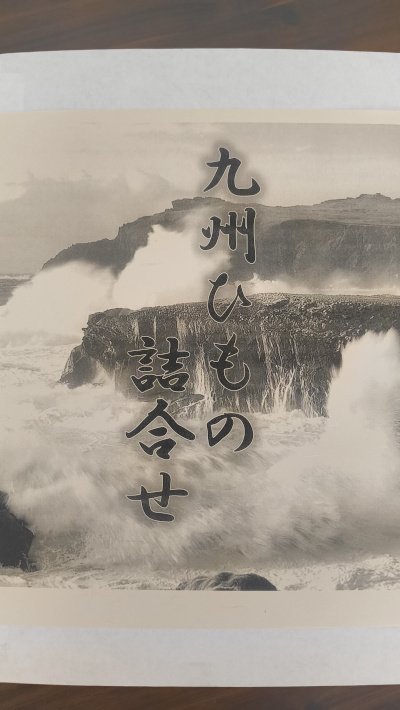 九州ひもの
詰合せ